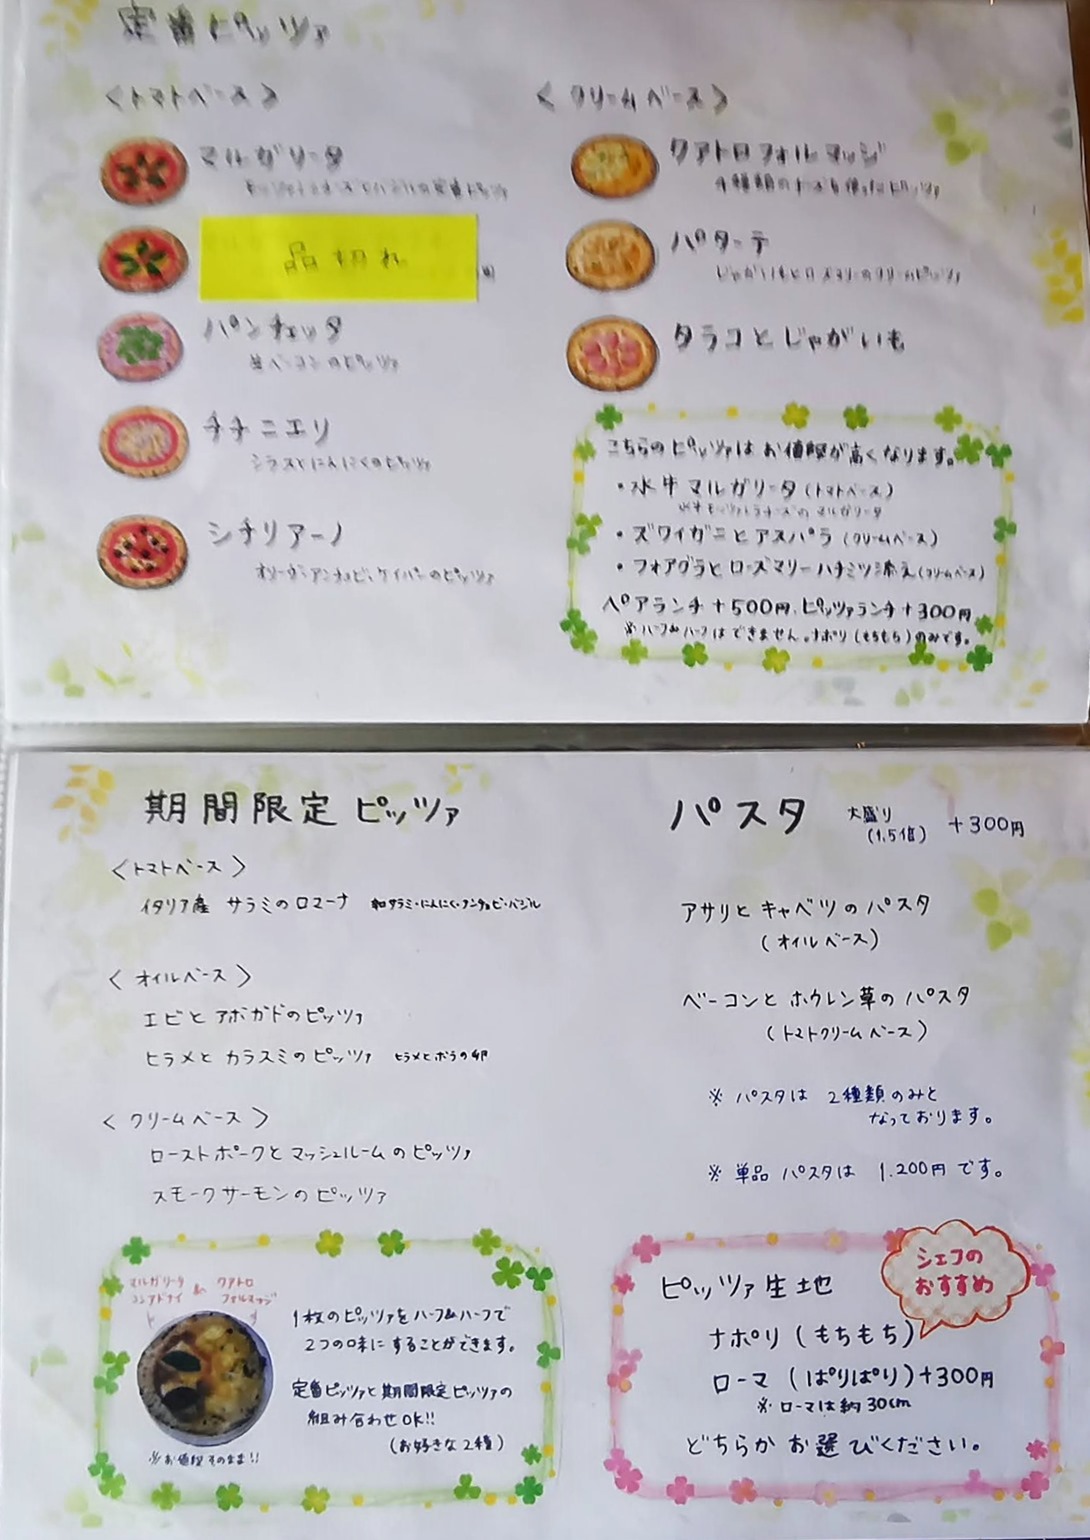 定番ピッツァ
〈トマトベース〉
マルガリータ
モッツァレラチーズとバジルの定番ピッツァ
品切れ
パンチェッタ
生ベーコンのピッツァ
チチニエリ
シラスとにんにくのピッツァ
シチリアーノ
オリーブ・アンチョビ・ケイパーのピッツァ
〈クリームベース〉
クアトロフォルマッジ
4種類のチーズを使ったピッツァ
パターテ
じゃがいもとローズマリーのクリームピッツァ
タラコとじゃがいも
こちらのピッツァはお値段が高くなります。
・水牛マルガリータ(トマトベース)
水牛モッツァレラチーズのマルガリータ
・ズワイガニとアスパラ(クリームベース)
・フォアグラとローズマリーハチミツ添え(クリームベース)
ペアランチ+500円、ピッツァランチ+300円
※ハーフ&ハーフはできません。ナポリ(もちもち)のみです。
期間限定ピッツァ
〈トマトベース〉
イタリア産 サラミのロマーナ 和サラミ・にんにく・アンチョビ・バジル
〈オイルベース〉
エビとアボガドのピッツァ
ヒラメとカラスミのピッツァ ヒラメとボラの卵
〈クリームベース〉
ローストポークとマッシュルームのピッツァ
スモークサーモンのピッツァ
マルガリータ & クアトロ
コンアドナイ フォルマッジ
1枚のピッツァをハーフ&ハーフで
2つの味にすることができます。
定番ピッツァと期間限定ピッツァの
組み合わせOK!!
(お好きな2種)
※お値段そのまま!!
パスタ 大盛り(1.5倍) +300円
アサリとキャベツのパスタ
(オイルベース)
ベーコンとホウレン草のパスタ
(トマトクリームベース)
※パスタは 2種類のみと
なっております。
※単品パスタは 1.200円です。
シェフの
おすすめ
ピッツァ生地
ナポリ(もちもち)
ローマ(ぱりぱり)+300円
※ローマは約30cm
どちらかお選びください。